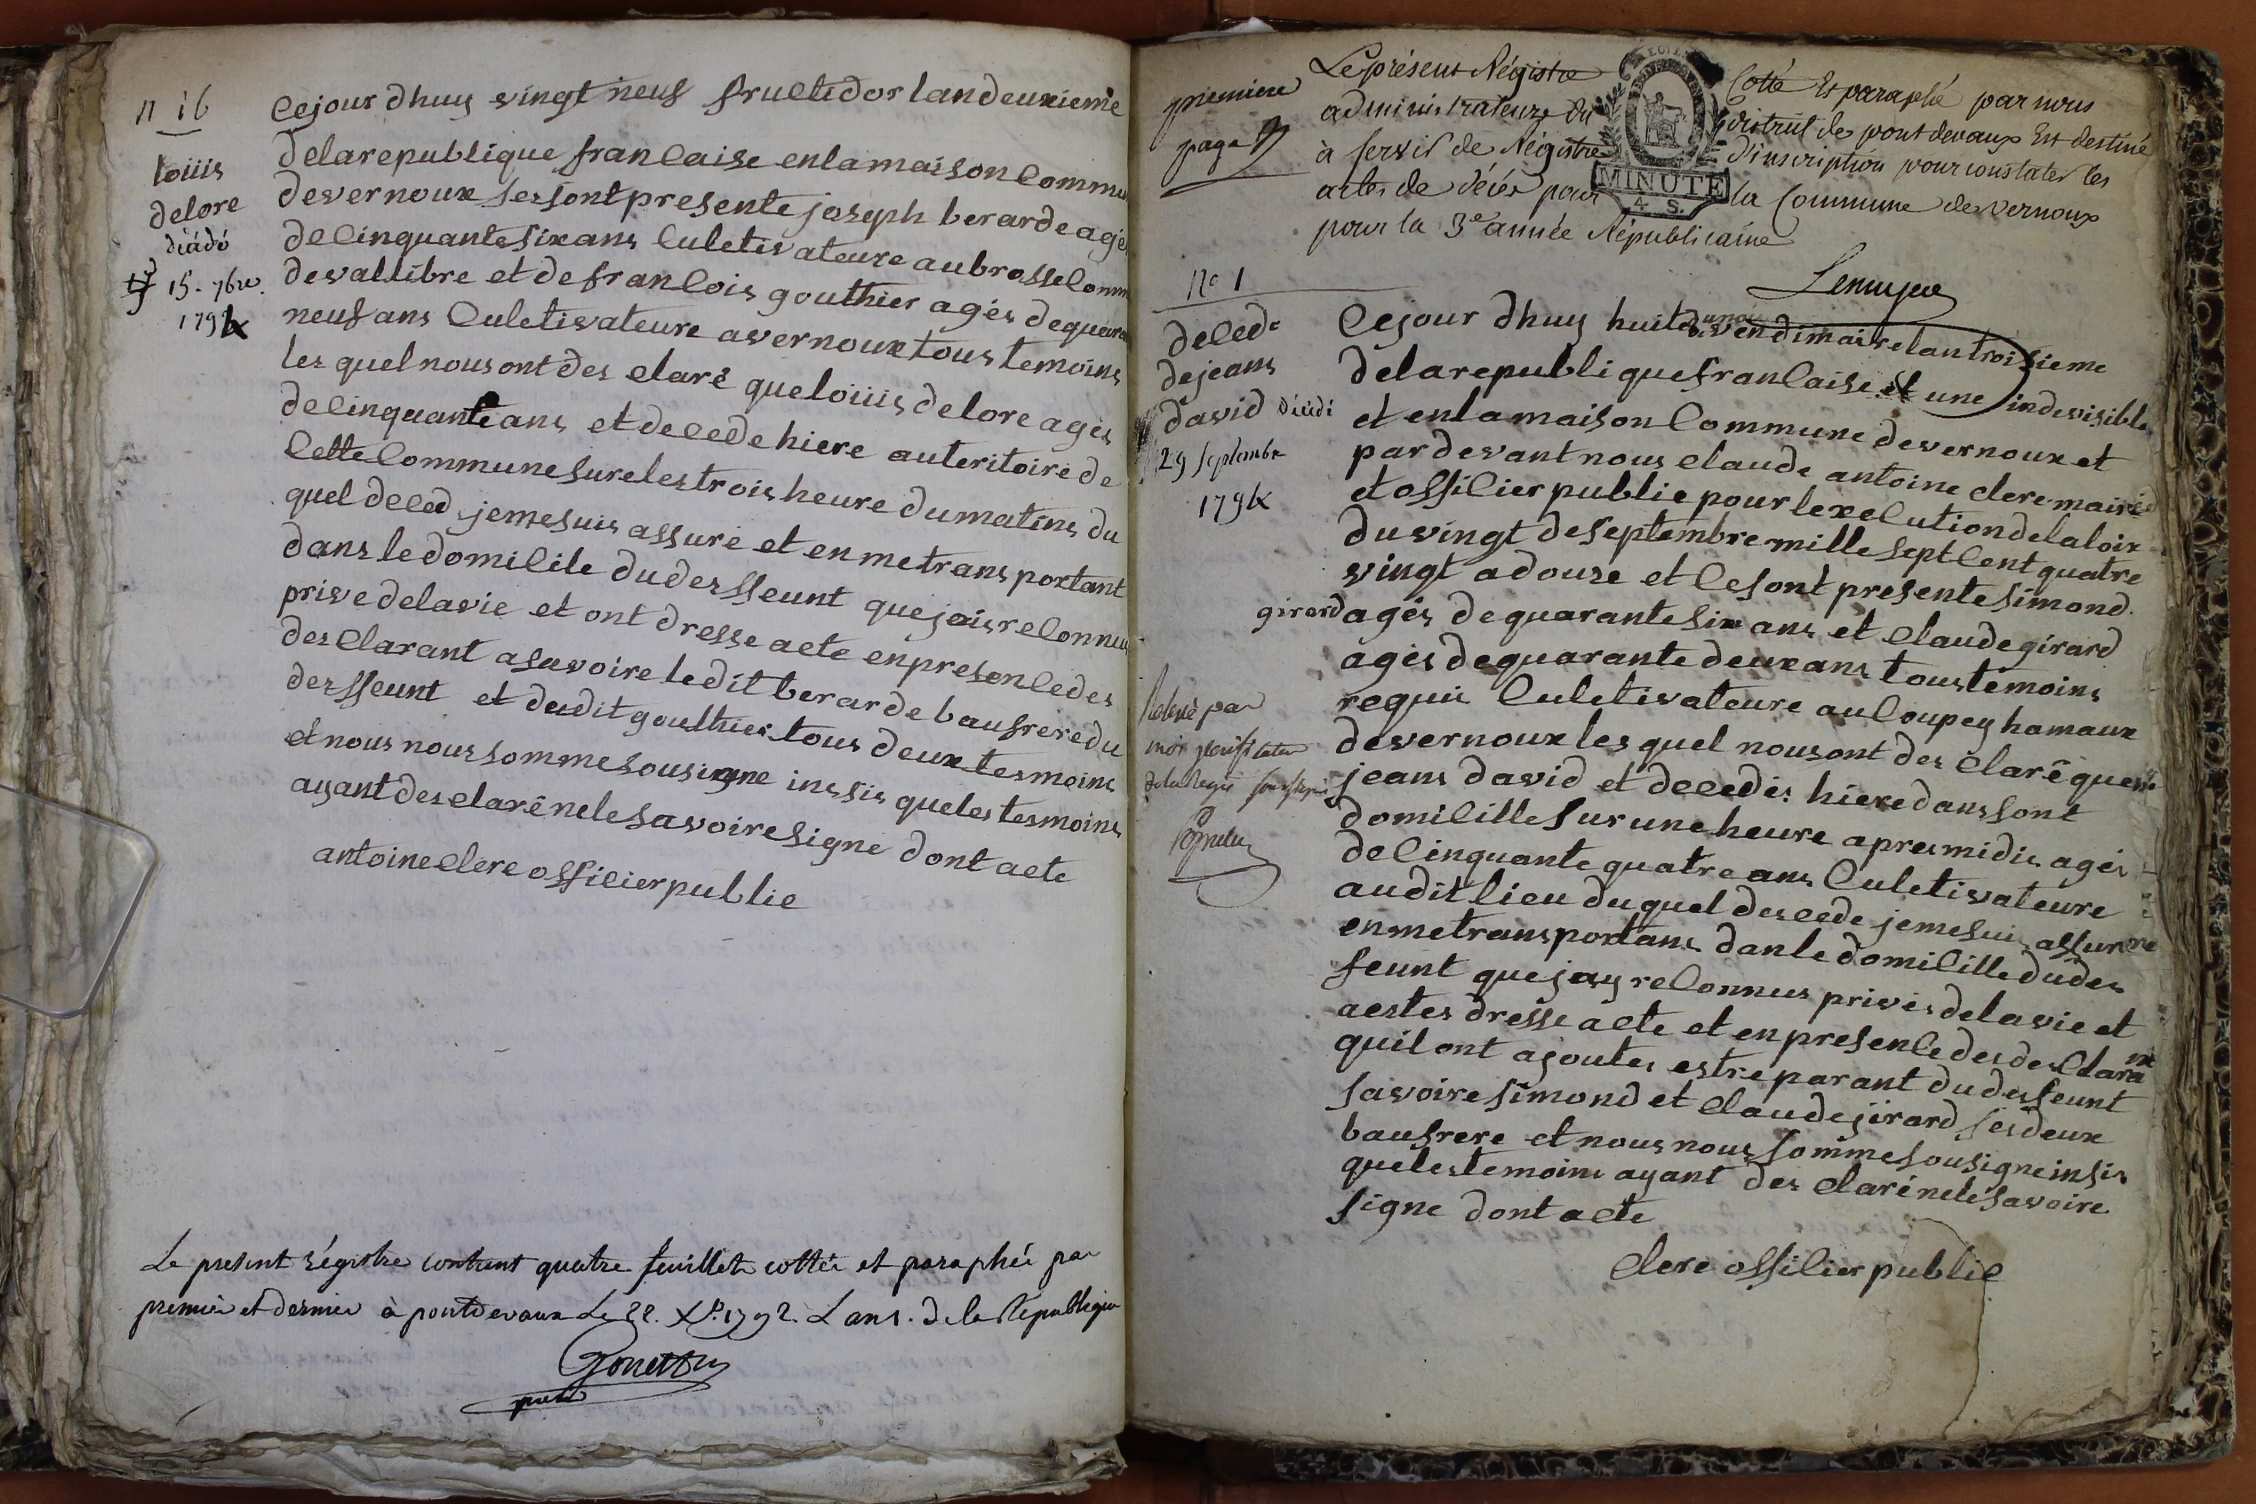 n 16
loiiis
delore
15. 7bre
1794
Cejour dhuy vingt neuf fructidor landeuxieme
delarepublique francaise enlamaison Commu
devernoux sessont presente joseph berarde agés
decinquante six ans culetivateure aubrosse Comm
devallibre et defrancois gouthier agés dequara
neuf ans Culetivateure avernoux tous temoins
les quel nous ont des claré que loiiis delore agés
decinquante ans et decede hiere auteritoire de
cette Commune sure les trois heure dumatins du
quel deced jemesuis assuré et enmetransportant
dans ledomicile dudesffeunt que jais reconnu
privedelavie et ont dresse acte enpresence des
desclarant asavoire ledit berarde baufrere du
desffeunt et dudit gouthier tous deux tesmoins
et nous nous somme sousigne inssis que les tesmoins
ayant desclaré nele savoire signe dont acte
antoine clere officier public
Le present régistre contient quatre feuillets cottés et paraphés par
premier et dernier à pontdevaux Le 22. Xb. 1792. L'an 1. de la République
premiere
page
Le présent Régistre Cotté Et paraphé par nous
administrateurs du district de pont devaux Est destiné
à servir de Régistre d'inscription pour constater les
actes de décés pour la Commune de vernoux
pour la 3e année Républicaine
MINUTE
4. S.
No 1
deced
dejeans
david décédé
29 septembre
1794
Cejour dhuy huit vendimaire lan troisieme
delarepublique francaise et une indevisible
et enlamaison Commune devernoux et
pardevant nous claude antoine clere maire
et officier public pour lexecution delaloix
duvingt deseptembre mille sept cent quatre
vingt adouze et cesont presente simond
girard agés dequarante six ans et claude girard
agés dequarante deux ans tous temoins
requis Culetivateure au Coupey hamaux
devernoux les quel nous ont des claré que
jeans david et decedés hiere dans sont
domicille sur une heure apresmidis agés
decinquante quatre ans Culetivateure
audit lieu duquel descede jemesuis assurre
enmetransportans danle domicille dudes
feunt que jay reconnus privés delavie et
aestes dresse acte et enpresence des desclara
quil ont ajoutes estre parant dudesfeunt
savoire simond et claude jirard ses deux
baufrere et nous nous somme sousigne insis
que les temoins ayant des claré nelé savoire
signe dont acte
clere officier public
Relevé par